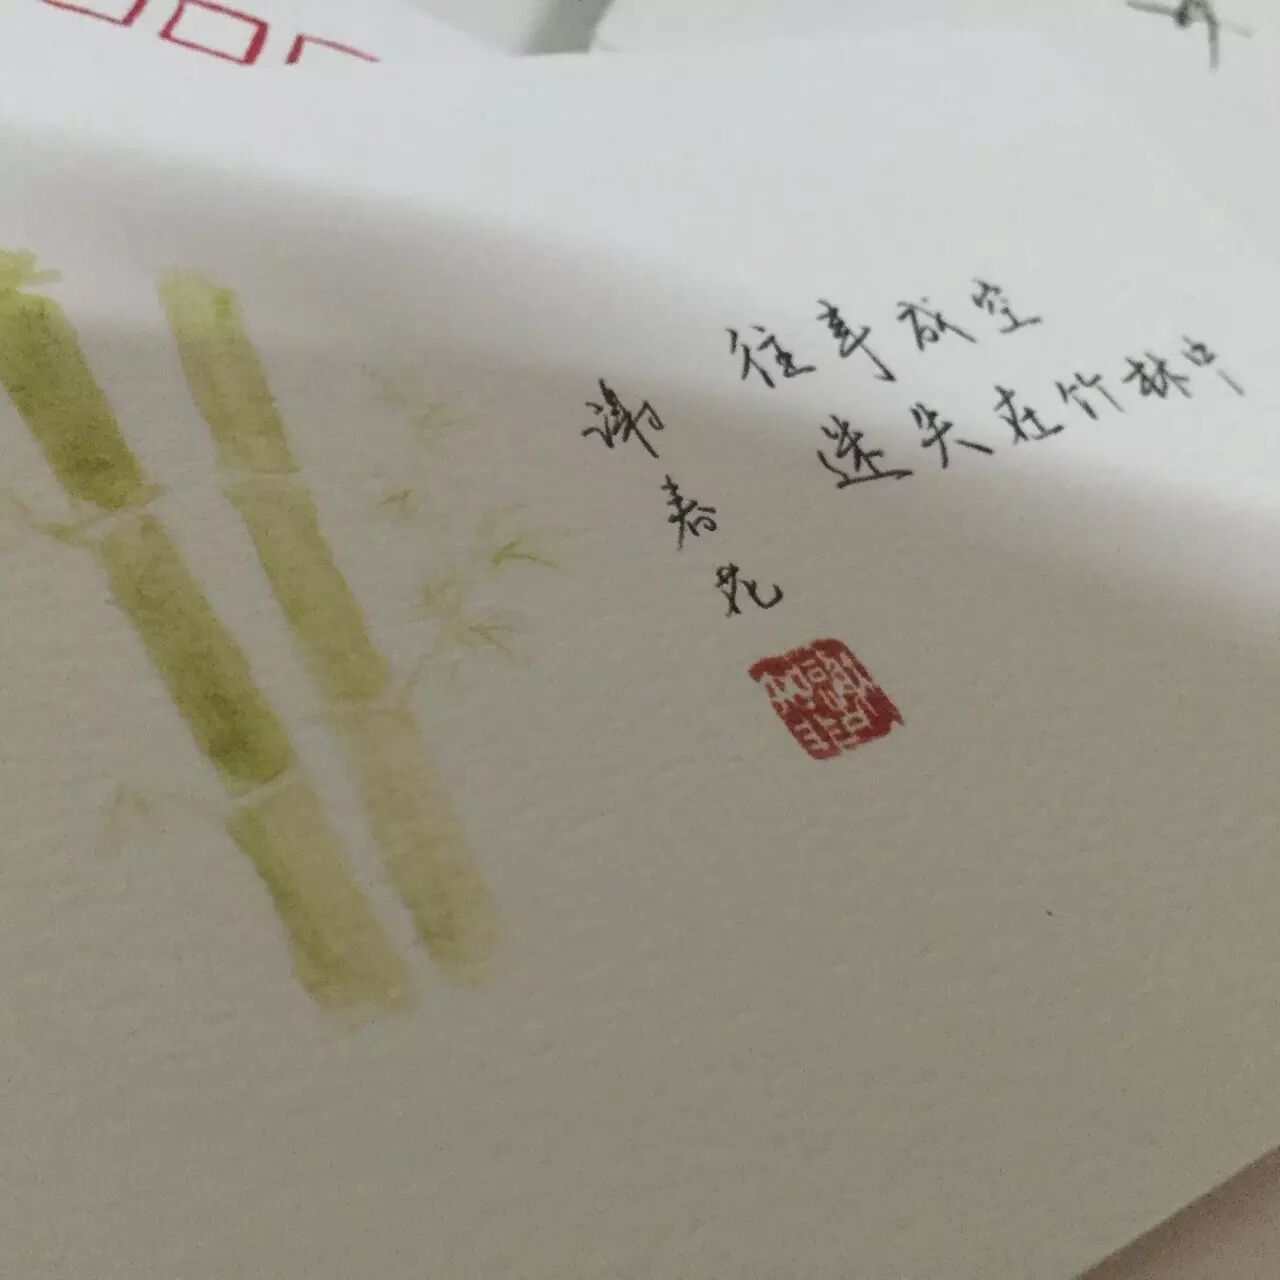 往事成空
迷失在竹林中
谢春花